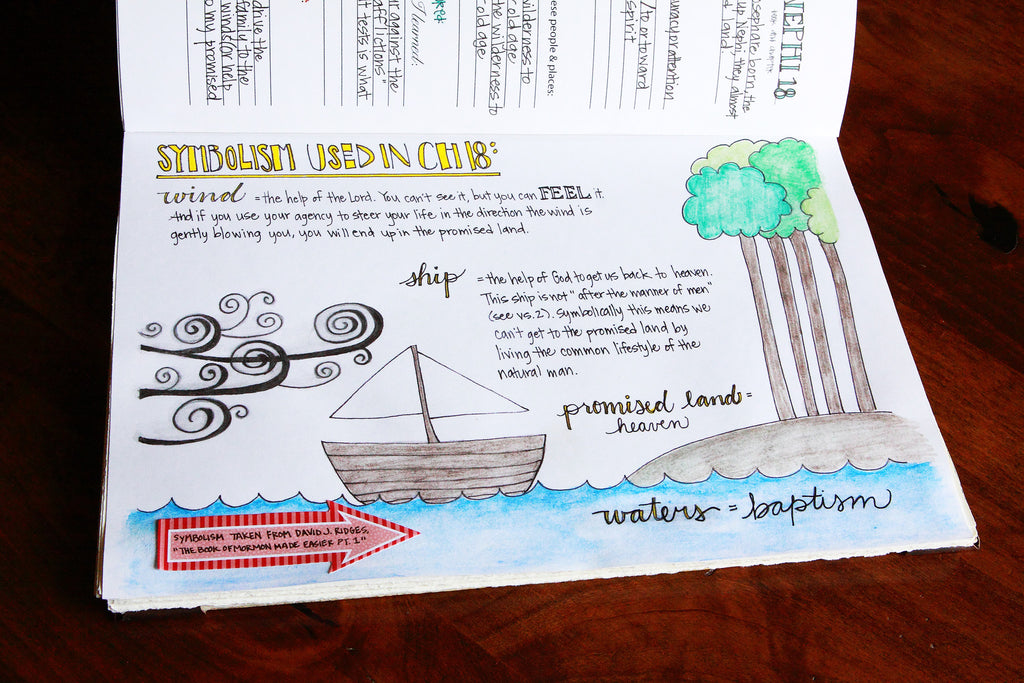 NEPHI 18
are born, the
up Nephi, they almost
land.
attention
to or toward
spirit
people & places:
wilderness to
old age
the wilderness to
old age
against the
afflictions"
tests is what
drive the
family to the
winds (or help
my promised
SYMBOLISM USED IN CH 18:
wind = the help of the Lord. You can't see it, but you can FEEL it.
And if you use your agency to steer your life in the direction the wind is
gently blowing you, you will end up in the promised land.
ship = the help of God to get us back to heaven.
This ship is not "after the manner of men"
(see vs. 2). Symbolically this means we
can't get to the promised land by
living the common lifestyle of the
natural man.
promised land =
heaven
waters = baptism
SYMBOLISM TAKEN FROM DAVID J. RIDGES,
"THE BOOK OF MORMON MADE EASIER PT. 1"